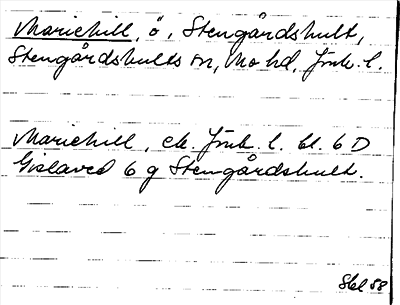 Mariehill, ö, Stengårdshult,
Stengårdshults sn, Mo hd, Jönk. l.
Mariehill, ek. Jönk. l. bl. 6 D
Gislaved 6 g Stengårdshult.
Skl 58